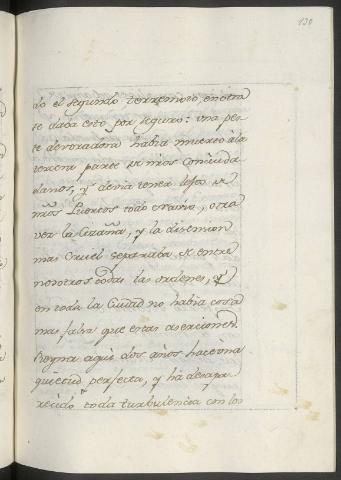 130
do el segundo terremoto, en otra
se daba esto por seguro: una pes-
te devoradora habia muerto à la
tercera parte de nr̃os Conciuda-
danos, y devia tener lejos de
nr̃os Puertos todo navio, otra
vez la Cizaña, y la disension
mas cruel separaba de entre
nosotros todas las ordenes, y
en toda la Ciudad no habia cosa
mas falsa que estas aserciones.
Reyna aqui dos años hace una
quietud perfecta, y ha desapa-
recido toda turbulencia con los